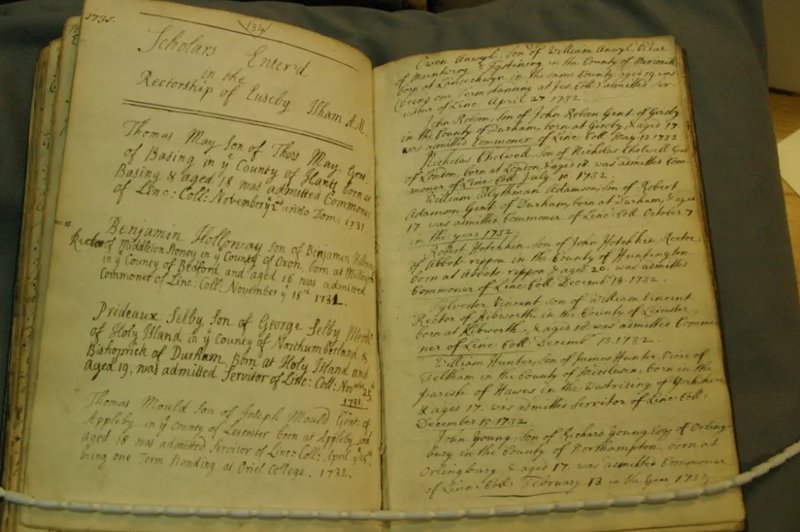 1731.
134
Scholars Enter'd
in the
Rectorship of Euseby Isham A.M.
Thomas May Son of Thos May Gent.
of Basing in ye County of Hants born at
Basing & aged 18 was admitted Commoner
of Linc: Coll: November ye 2nd anno Dom: 1731.
Benjamin Holloway son of Benjamin Holloway
Rector of Middleton Stoney in ye County of Oxon, born at
in ye County of Bedford and aged 16 was admitted
Commoner of Linc: Coll: November ye 18th 1731.
Prideaux Selby Son of George Selby
of Holy Island in ye County of Northumberland &
Bishoprick of Durham Born at Holy Island and
Aged 19, was admitted Servitor of Linc: Coll: November
1731
Thomas Mould Son of Joseph Mould Gent. of
Appleby in ye County of Leicester born at Appleby and
aged 18 was admitted Servitor of Linc: Coll: April ye
being one Term standing at Oriel College. 1732.
Owen Anwyl, son of William Anwyl Vicar
of in the County of
born at in the same County, aged
(being one Term standing at Jes. Coll.) admitted Ser-
vitor of Linc. April 27 1732.
John Robson, son of John Robson Gent. of Girsby
in the County of Durham, born at Girsby, & aged 17
was admitted Commoner of Linc. Coll. May 12 1732
Nicholas Cholwell, son of Nicholas Cholwell Gent
of London, born at London, & aged 18 was admitted Com-
moner of Linc. Coll. July 10 1732.
William Blythman Adamson, son of Robert
Adamson Gent. of Durham, born at Durham, & aged
17 was admitted Commoner of Linc. Coll. October 7
in the year 1732.
Robert Hotchkin, son of John Hotchkin Rector
of Abbots rippon in the County of Huntington
born at Abbots rippon & aged 20 was admitted
Commoner of Linc. Coll. Decemb 14 1732.
Sylvester Vincent, son of William Vincent
Rector of Kibworth in the County of Leicester,
born at Kebworth, & aged 18 was admitted Commo-
ner of Linc. Coll. Decemb 15. 1732.
William Hunter, son of James Hunter, Vicar of
Weltham in the County of, born in the
parish of Hawes in the of Yorkshire
& aged 17 was admitted Servitor of Linc. Coll.
December 15 1732
John Young, son of Richard Young Esqr. of Orling-
bury in the County of Northampton, born at
Orlingbury & aged 17 was admitted Commoner
of Linc. Coll. February 13 in the year 1732